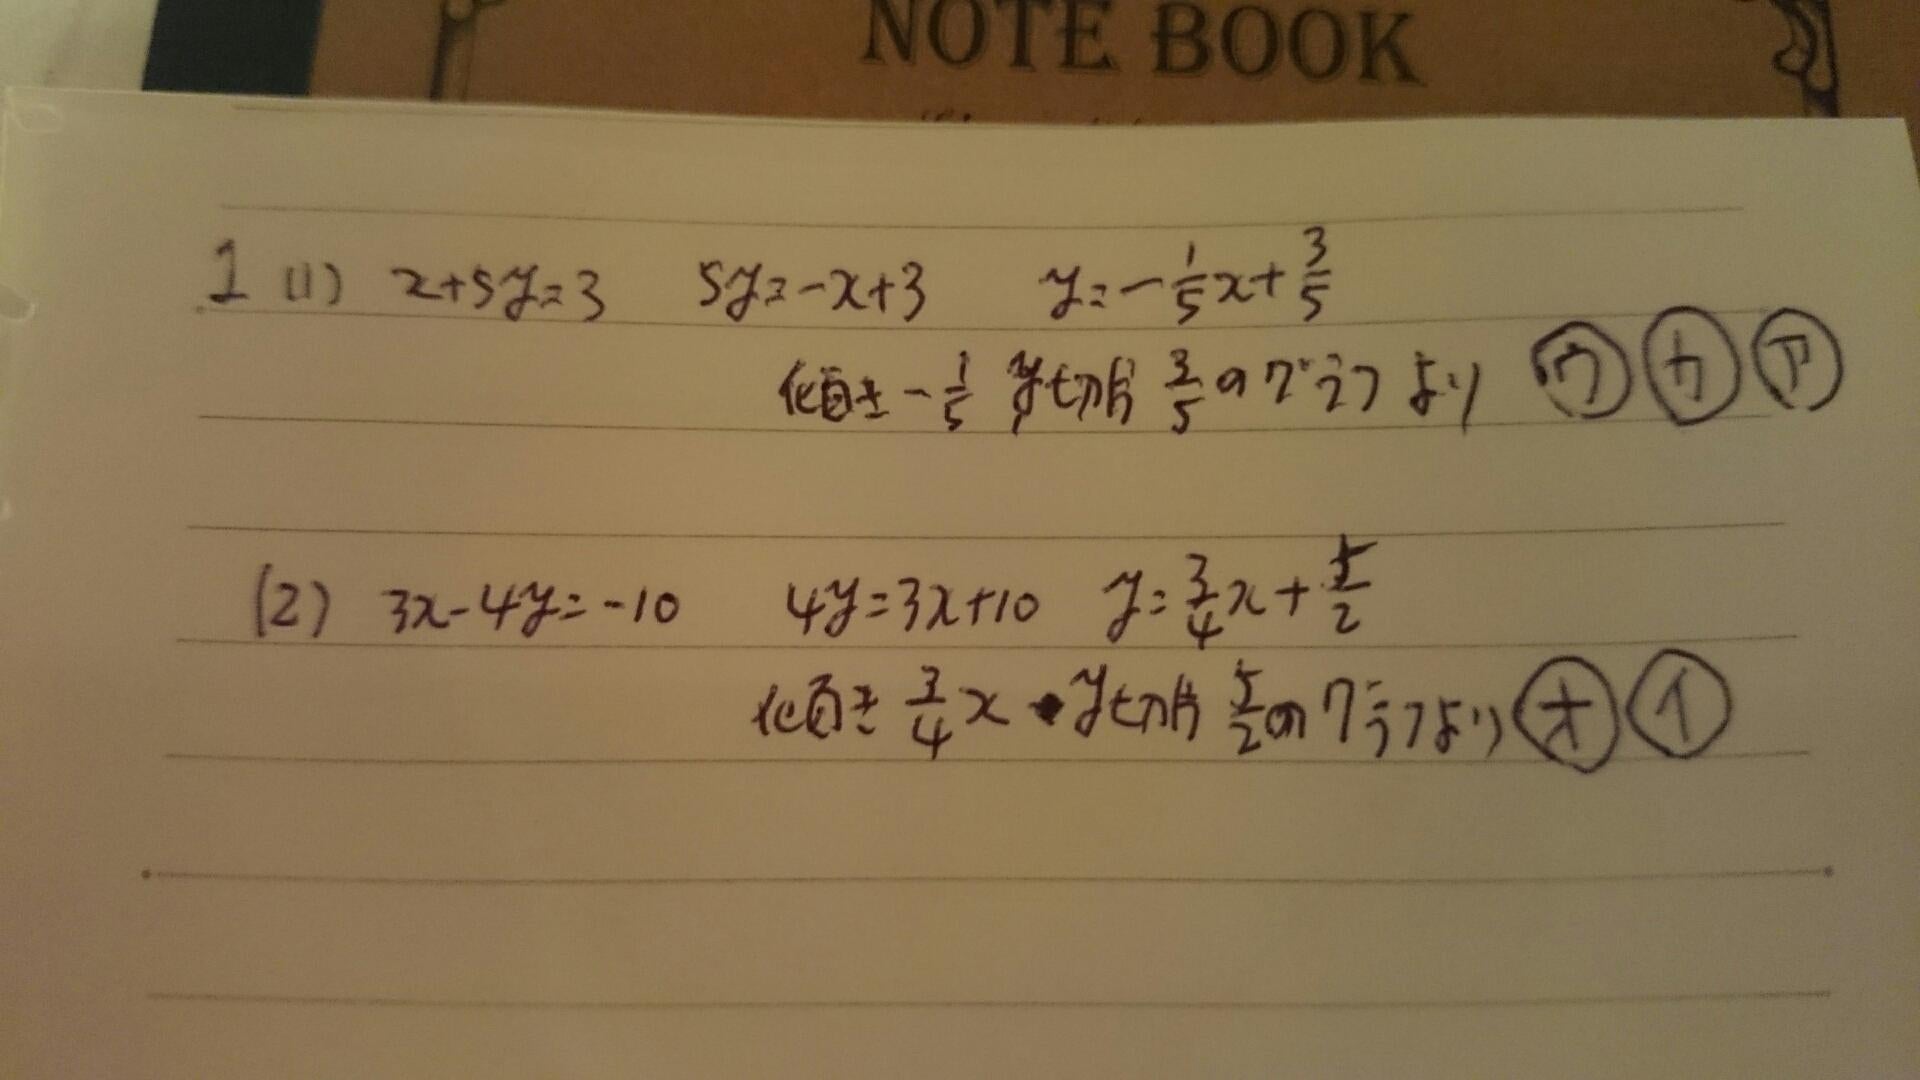 NOTE BOOK
1 (1) x+5y=3 5y=-x+3 y=-1/5x+3/5
傾き -1/5 y切片 3/5のグラフより ウ カ ア
(2) 3x-4y=-10 4y=3x+10 y=3/4x+5/2
傾き 3/4x y切片 5/2のグラフより オ イ